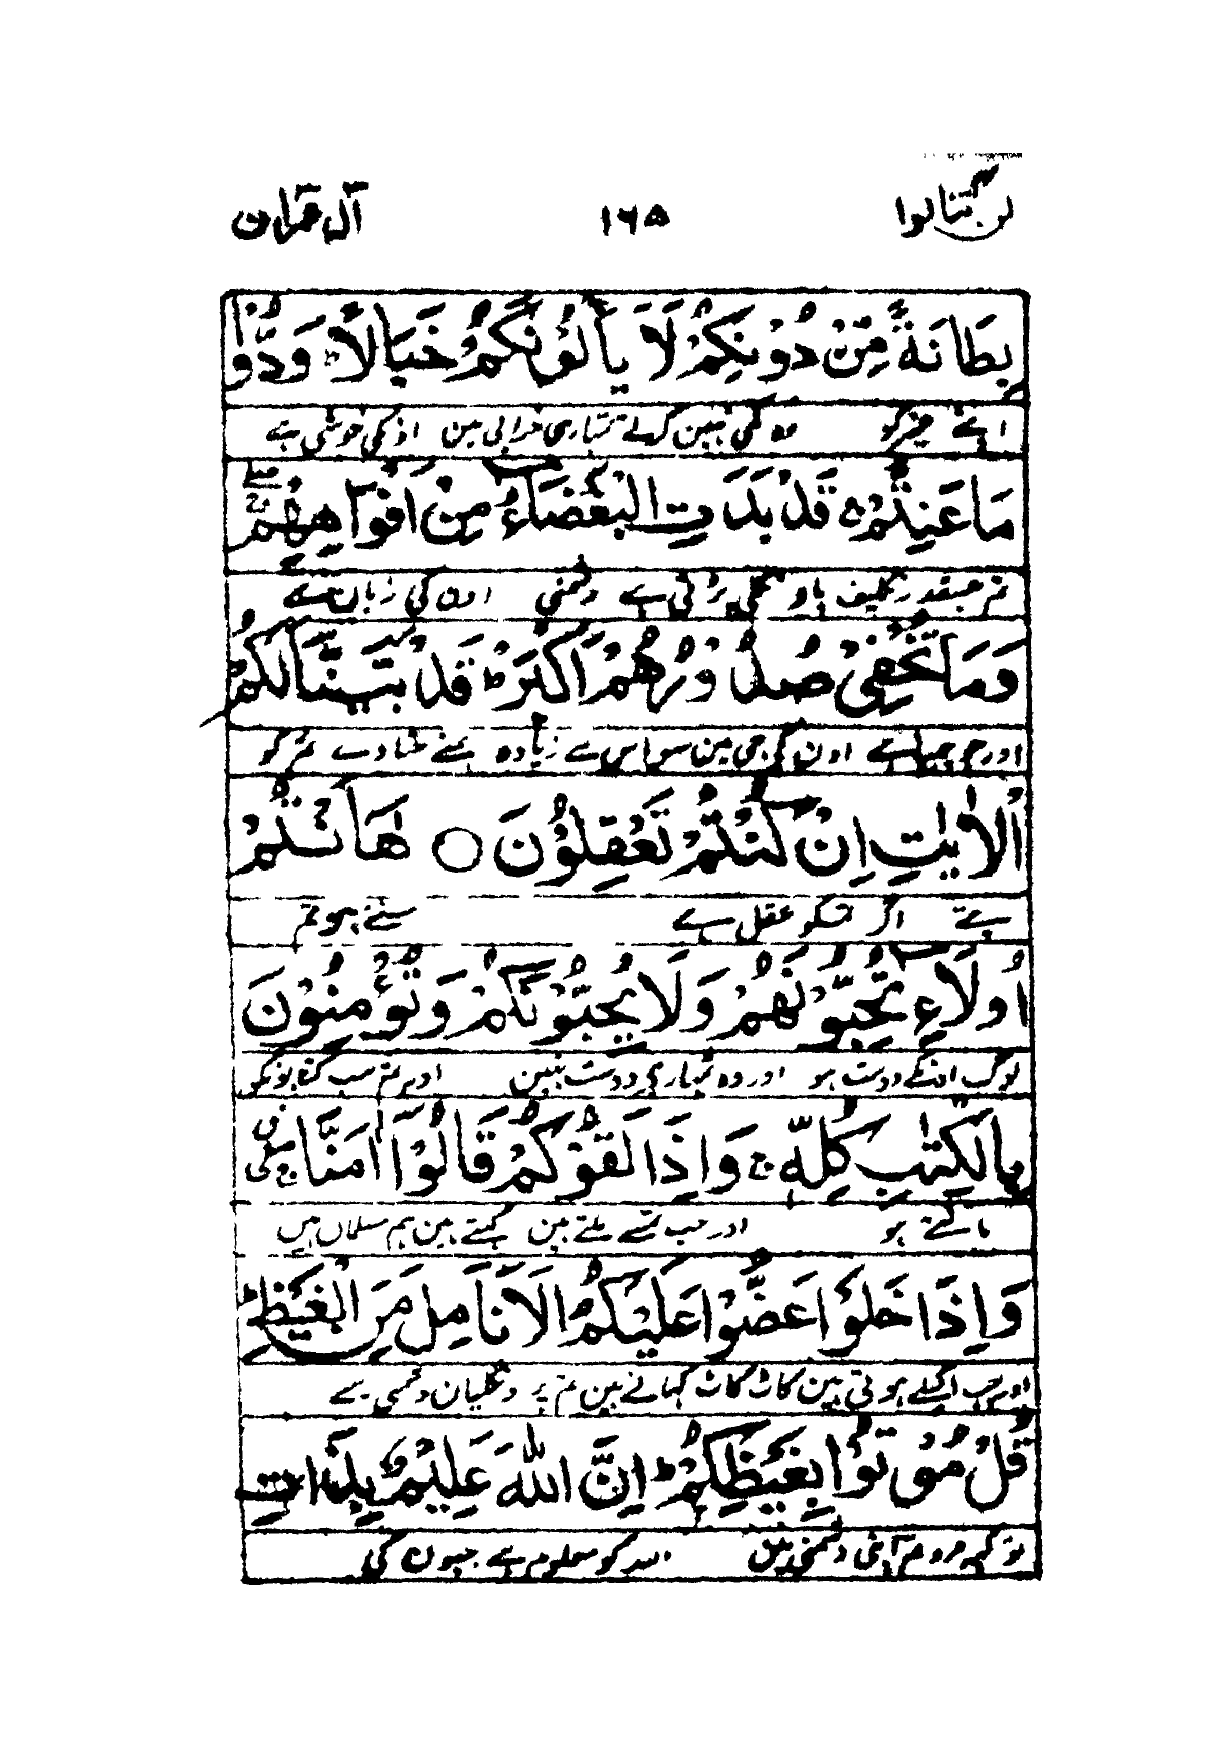 لن تنالوا ١٦٥ آل عمران
بِطَانَةً مِّنْ دُوْنِكُمْ لَا يَأْلُوْنَكُمْ خَبَالًا ؕ وَدُّوْا
اپنے غیر کو وہ کمی نہیں کرتے تمہاری خرابی میں اونکی خوشی ہے
مَا عَنِتُّمْ ۚ قَدْ بَدَتِ الْبَغْضَآءُ مِنْ اَفْوَاهِهِمْ ۖۚ
تم جسقدر تکلیف پاو نکلی پڑتی ہے دشمنی اون کی زبان سے
وَمَا تُخْفِيْ صُدُوْرُهُمْ اَكْبَرُ ؕ قَدْ بَيَّنَّا لَكُمُ
اور جو چھپا ہے اون کی جی میں سو اس سے زیادہ ہمنے بتا دے تم کو
الْاٰيٰتِ اِنْ كُنْتُمْ تَعْقِلُوْنَ ○ هٰۤاَنْتُمْ
پتے اگر تمکو عقل ہے سنتے ہو تم
اُولَآءِ تُحِبُّوْنَهُمْ وَلَا يُحِبُّوْنَكُمْ وَتُؤْمِنُوْنَ
لوگ اونکے دوست ہو اور وہ تمہاری دوست نہیں اور تم سب کتابونکو
بِالْكِتٰبِ كُلِّهٖ ۚ وَاِذَا لَقُوْكُمْ قَالُوْۤا اٰمَنَّا
مانتے ہو اور جب تمسے ملتے ہین کہتے ہین ہم مسلمان ہیں
وَاِذَا خَلَوْا عَضُّوْا عَلَيْكُمُ الْاَنَامِلَ مِنَ الْغَيْظِ ؕ
اور جب اکیلے ہوتی ہین کاٹ کاٹ کہاتے ہین تم پر دشمنی سے
قُلْ مُوْتُوْا بِغَيْظِكُمْ ؕ اِنَّ اللّٰهَ عَلِيْمٌۢ بِذَاتِ
تو کہہ مرو تم اپنی دشمنی میں اللہ کو معلوم ہے جیون کی